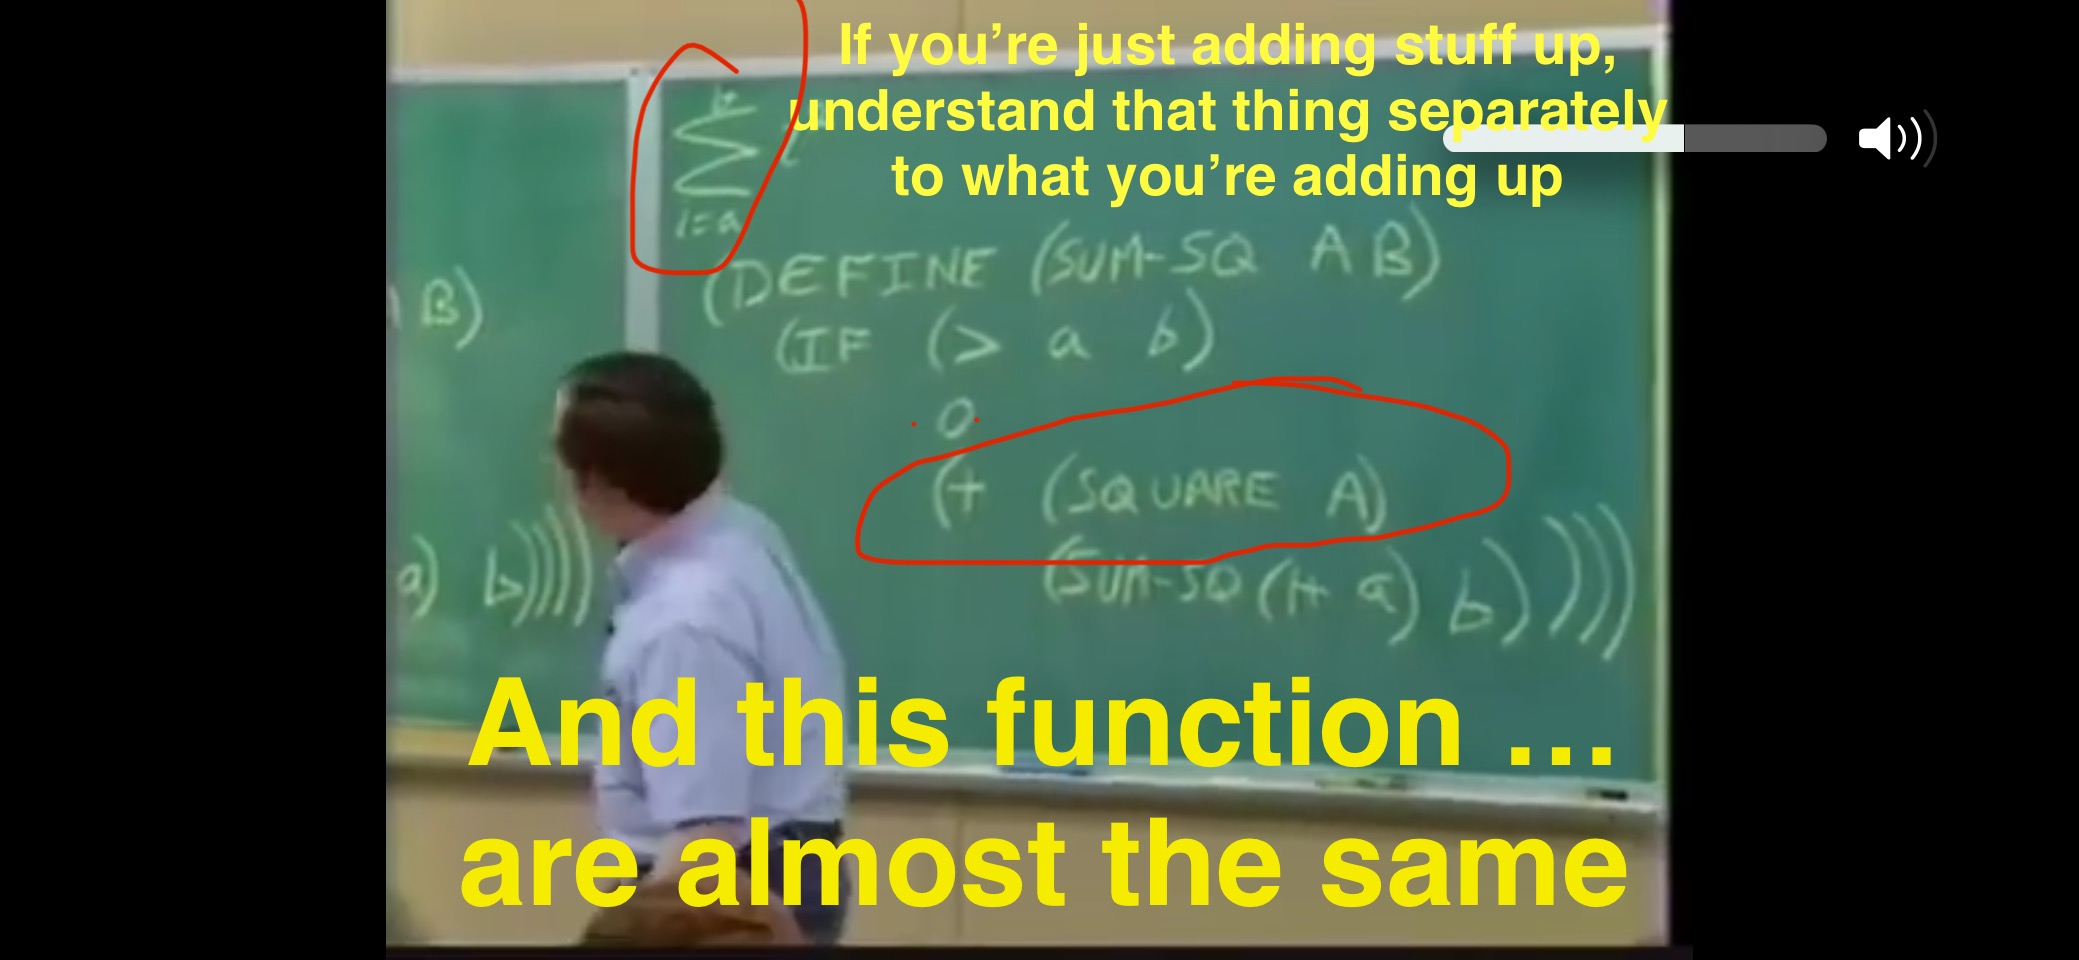 If you’re just adding stuff up,
understand that thing separately
to what you’re adding up
b
i=a
(DEFINE (SUM-SQ A B)
(IF (> a b)
0
(+ (SQUARE A)
(SUM-SQ (1+ a) b))))
B)
a) b))))
And this function …
are almost the same